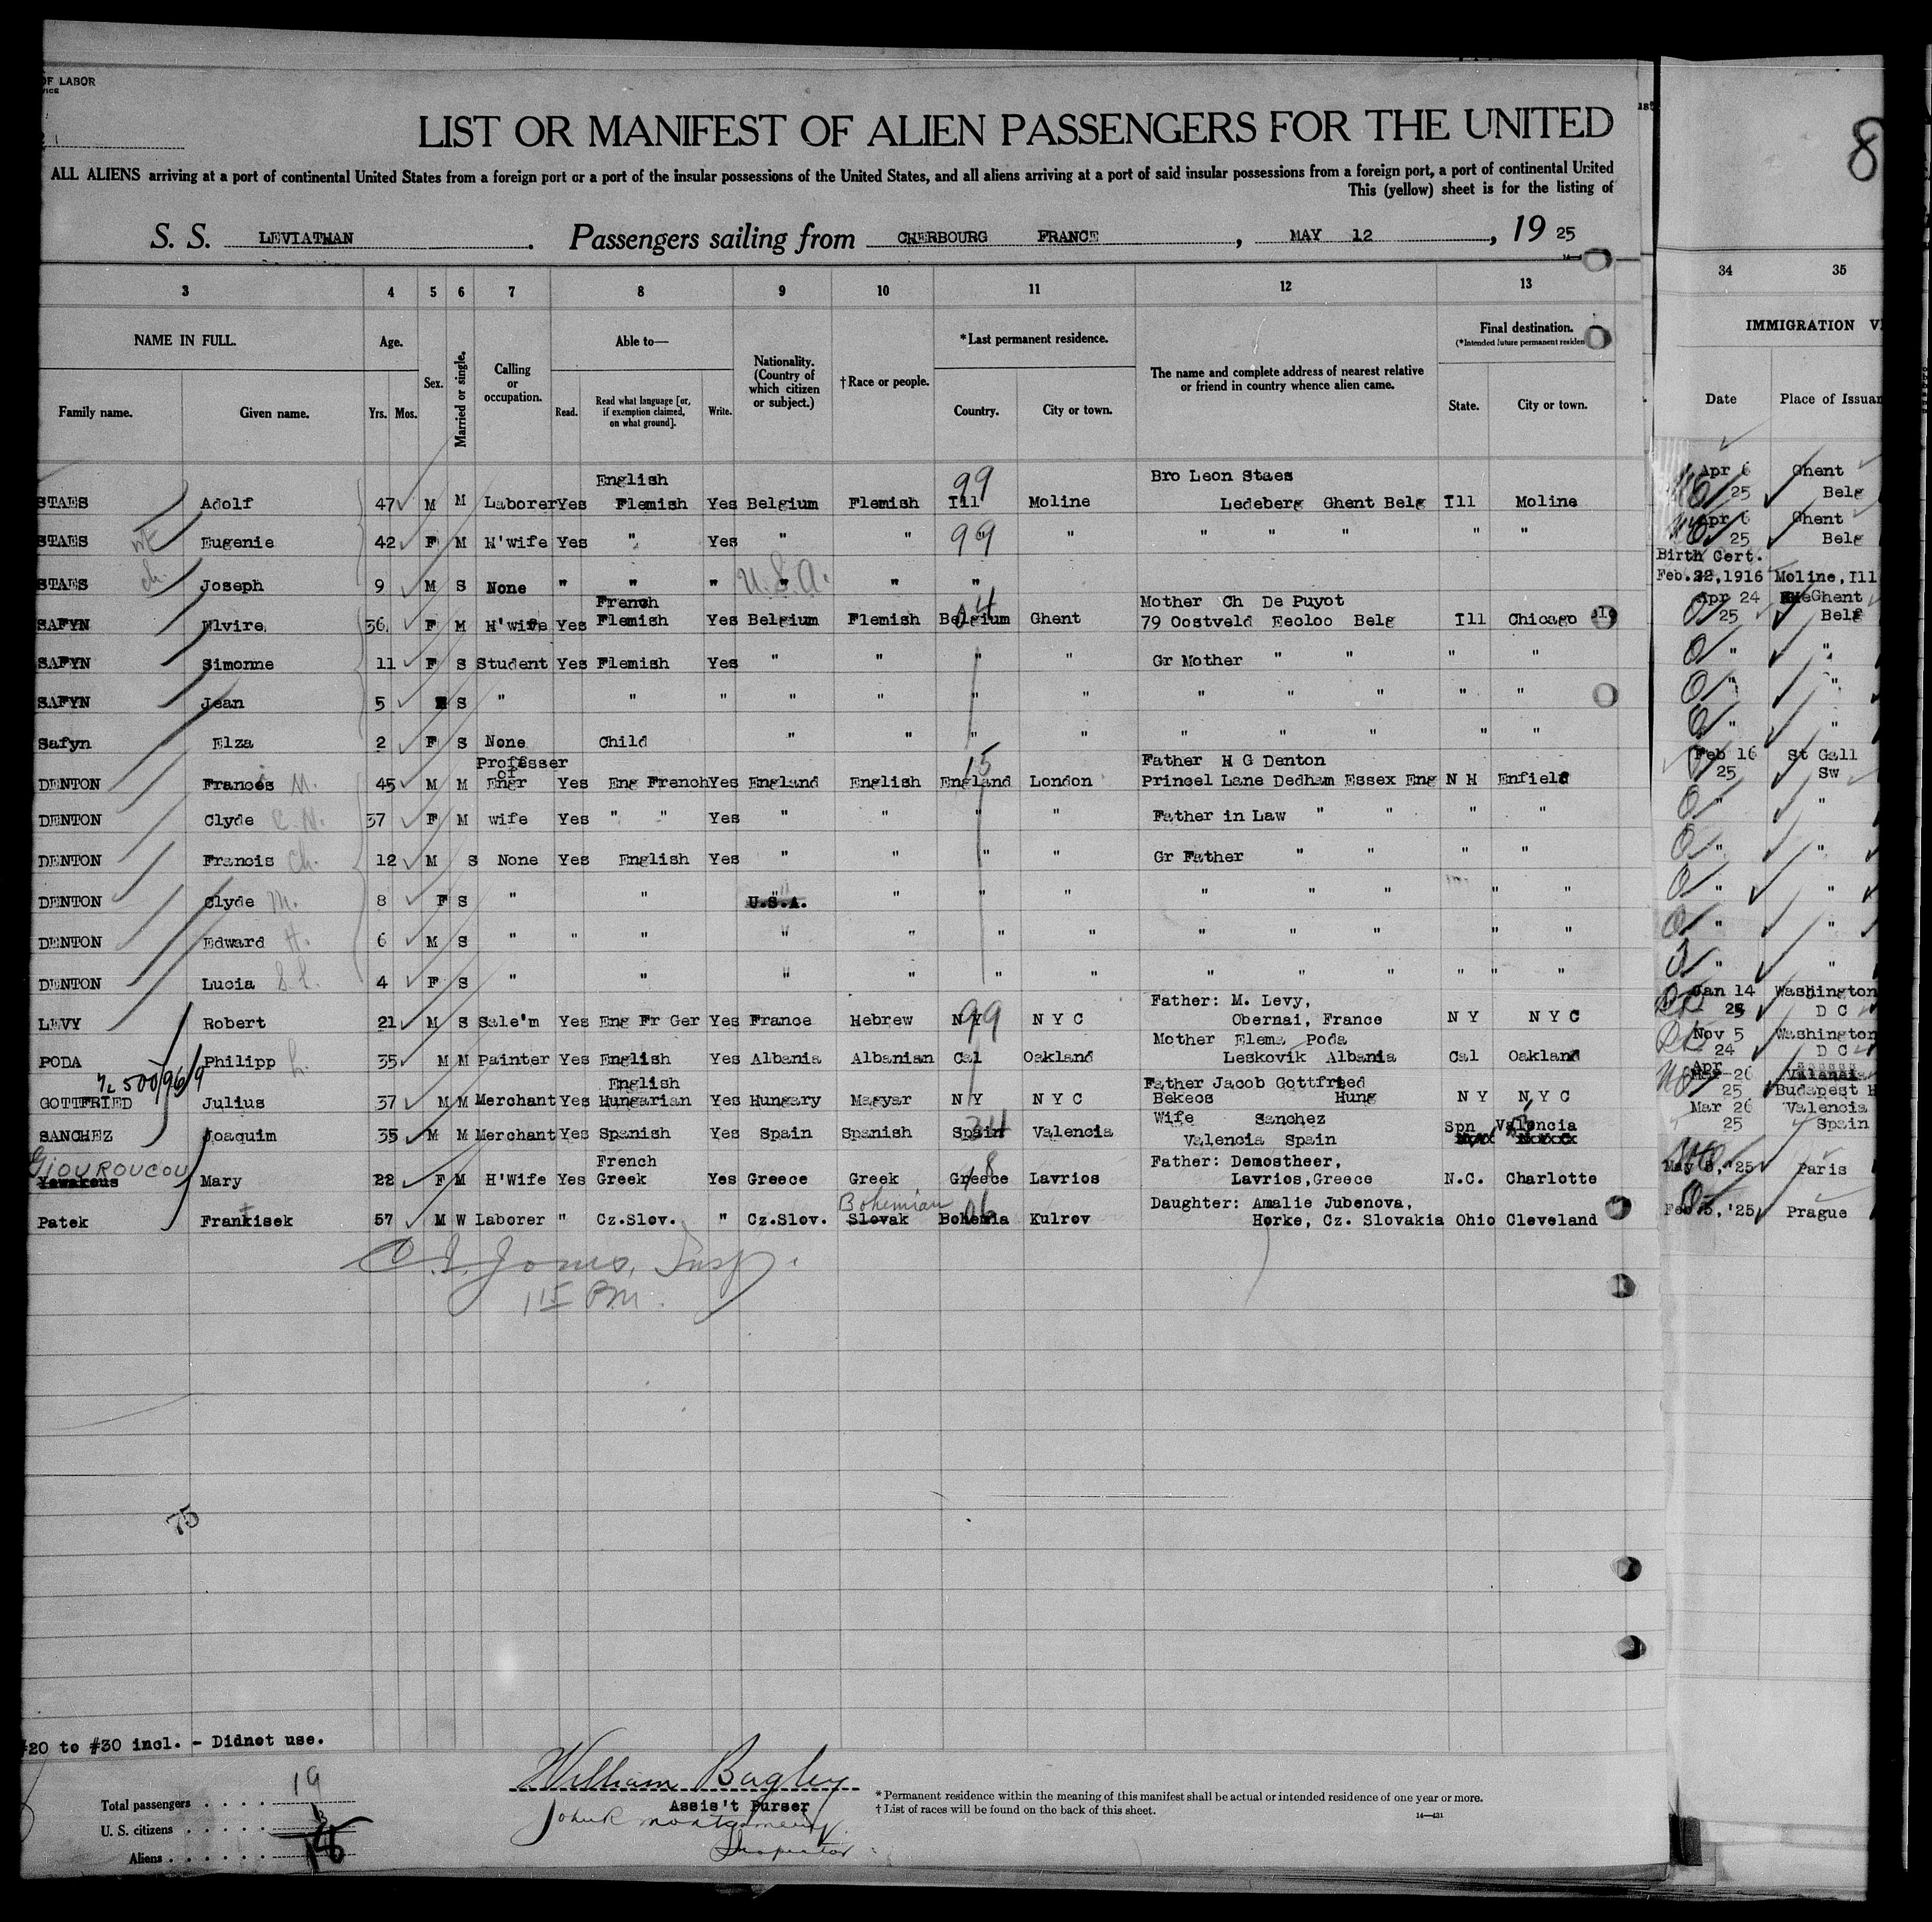 OF LABOR
LIST OR MANIFEST OF ALIEN PASSENGERS FOR THE UNITED
ALL ALIENS arriving at a port of continental United States from a foreign port or a port of the insular possessions of the United States, and all aliens arriving at a port of said insular possessions from a foreign port, a port of continental United
This (yellow) sheet is for the listing of
S. S. LEVIATHAN Passengers sailing from CHERBOURG FRANCE, MAY 12, 19 25
8
3 4 5 6 7 8 9 10 11 12 13 34 35
NAME IN FULL. Age. Sex. Married or single. Calling or occupation. Able to— Nationality. (Country of which citizen or subject.) †Race or people. *Last permanent residence. The name and complete address of nearest relative or friend in country whence alien came. Final destination. (*Intended future permanent residen IMMIGRATION V
Family name. Given name. Yrs. Mos. Read. Read what language [or, if exemption claimed, on what ground]. Write. Country. City or town. State. City or town. Date Place of Issuan
English 99 Bro Leon Staes Apr 6 Ghent
STAES Adolf 47 M M Laborer Yes Flemish Yes Belgium Flemish Ill Moline Ledeberg Ghent Belg Ill Moline 25 Belg
Apr 6 Ghent
STAES Eugenie 42 F M H'wife Yes " Yes " " 99 " " " " " " 25 Belg
Birth Cert.
STAES ch. Joseph 9 M S None " " " U.S.A. " " Feb. 22, 1916 Moline, Ill
French 04 Mother Ch De Puyot Apr 24 Ghent
SAFYN Elvire 36 F M H'wife Yes Flemish Yes Belgium Flemish Belgium Ghent 79 Oostveld Eecloo Belg Ill Chicago 25 Belg
SAFYN Simonne 11 F S Student Yes Flemish Yes " " " " Gr Mother " " " " " "
SAFYN Jean 5 S " " " " " " " " " " " " " "
Safyn Elza 2 F S None Child " " " " " " " " " " "
Professer of 15 Father H G Denton Feb 16 St Gall
DENTON Francis M. 45 M M Engr Yes Eng French Yes England English England London Princel Lane Dedham Essex Eng N H Enfield 25 Sw
DENTON Clyde C. N. 37 F M wife Yes " " Yes " " " " Father in Law " " " " " "
DENTON Francis Ch. 12 M S None Yes English Yes " " " " Gr Father " " " " " "
DENTON Clyde M. 8 F S " " U.S.A. " " " " " " " " " "
DENTON Edward H. 6 M S " " " " " " " " " " " " " "
DENTON Lucia 4 F S " " " " " " " " " " " " " "
99 Father: M. Levy, Jan 14 Washington
LEVY Robert 21 M S Sale'm Yes Eng Fr Ger Yes France Hebrew N Y N Y C Obernai, France N Y N Y C 25 D C
Mother Elema Poda Nov 5 Washington
PODA Philipp 35 M M Painter Yes English Yes Albania Albanian Cal Oakland Leskovik Albania Cal Oakland 24 D C
English Father Jacob Gottfried Apr Mar 26 Valencia
GOTTFRIED Julius 37 M M Merchant Yes Hungarian Yes Hungary Magyar N Y N Y C Bekecs Hung N Y N Y C 25 Budapest H
34 Wife Sanchez Mar 26 Valencia
SANCHEZ Joaquim 35 M M Merchant Yes Spanish Yes Spain Spanish Spain Valencia Valencia Spain Spn Valencia 25 Spain
GIOUROUCOU French 18 Father: Demostheer,
Mary 22 F M H'Wife Yes Greek Yes Greece Greek Greece Lavrios Lavrios, Greece N.C. Charlotte May 5, '25 Paris
Bohemian 06 Daughter: Amalie Jubenova,
Patek Frantisek 57 M W Laborer " Cz.Slov. " Cz.Slov. Slovak Bohemia Kulrov Horke, Cz. Slovakia Ohio Cleveland Feb 5, '25 Prague
C. I. Jones, Insp.
115 PM.
75
#20 to #30 incl. - Didnot use.
William Bagley
Assis't Purser
John R Montgomery
Inspector
Total passengers . . . . 19
U. S. citizens . . . . .
Aliens . . . . . .
*Permanent residence within the meaning of this manifest shall be actual or intended residence of one year or more.
†List of races will be found on the back of this sheet.
14—431